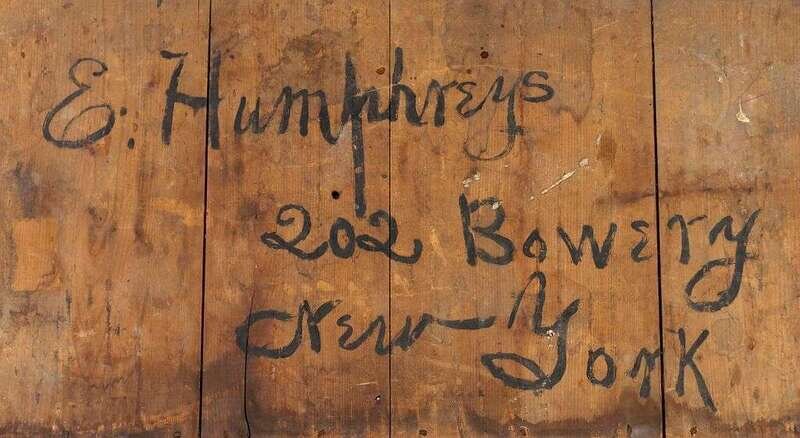 E. Humphreys
202 Bowery
New York